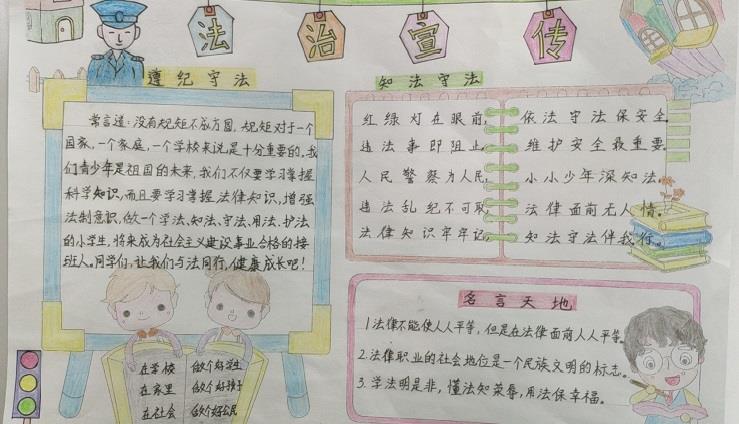 法治宣传
遵纪守法
常言道：没有规矩不成方圆，规矩对于一个
国家，一个家庭，一个学校来说是十分重要的。我
们青少年是祖国的未来，我们不仅要学习掌握
科学知识，而且要学习掌握法律知识，增强
法制意识，做一个学法、知法、守法、用法、护法
的小学生，将来成为社会主义建设事业合格的接
班人。同学们，让我们与法同行，健康成长吧！
在学校 做个好学生
在家里 做个好孩子
在社会 做个好公民
知法守法
红绿灯在眼前，依法守法保安全。
违法事即阻止，维护安全最重要。
人民警察为人民，小小少年深知法。
违法乱纪不可取，法律面前无人情。
法律知识牢牢记，知法守法伴我行。
名言天地
1.法律不能使人人平等，但是在法律面前人人平等。
2.法律职业的社会地位是一个民族文明的标志。
3.学法明是非，懂法知荣辱，用法保幸福。